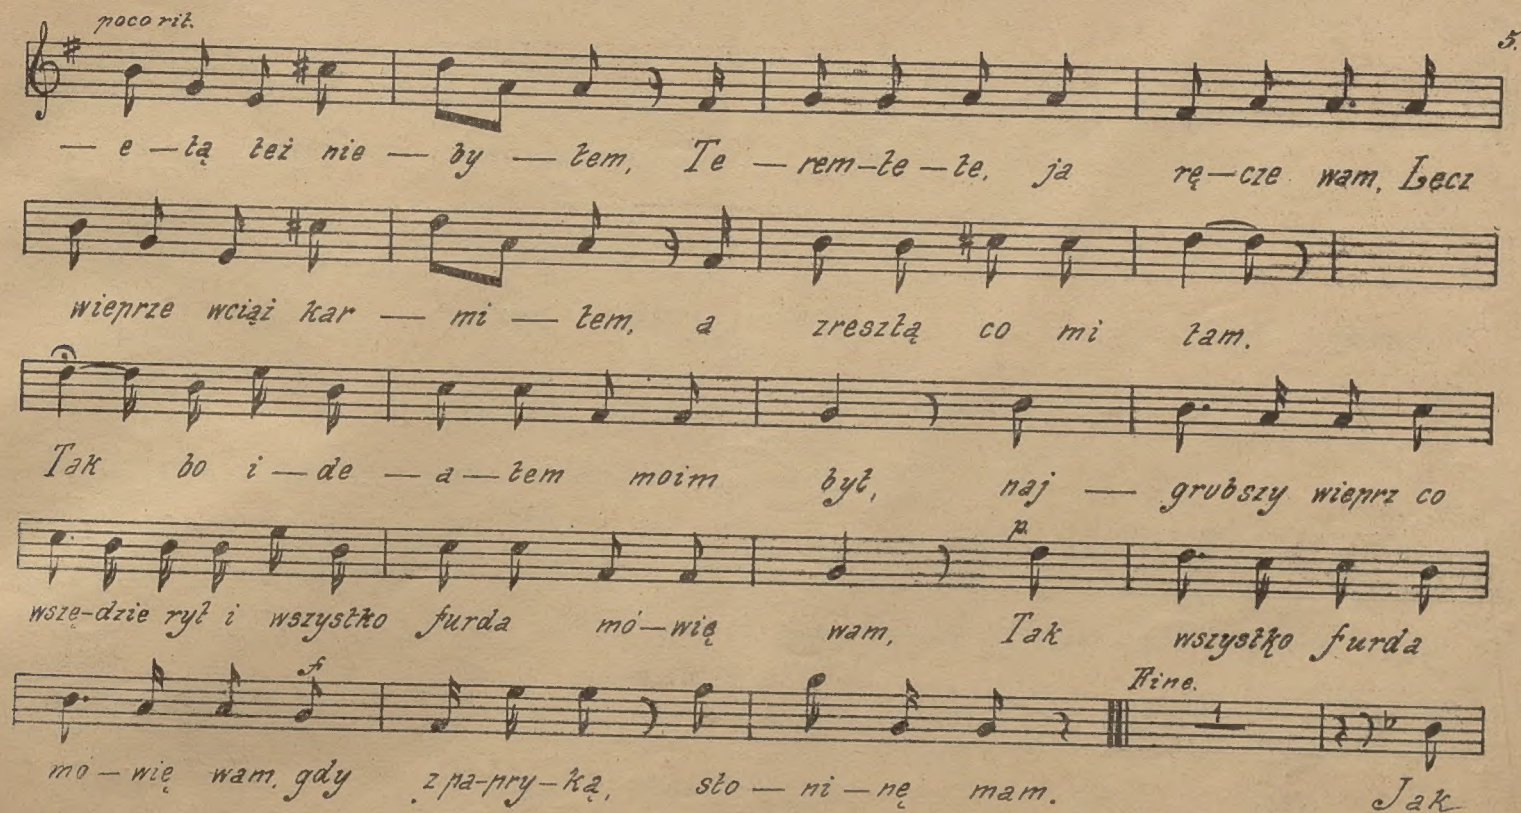 poco rit.
5.
— e — tą też nie — by — łem, Te — rem — te — te, ja rę — cze wam, Lecz
wieprze wciąż kar — mi — łem, a zresztą co mi tam.
Tak bo i — de — a — łem moim był, naj — grubszy wieprz co
p.
wszę — dzie rył i wszystko furda mó — wię wam, Tak wszystko furda
f Fine.
1
mó — wię wam, gdy z pa — pry — ką, sło — ni — nę mam. Jak